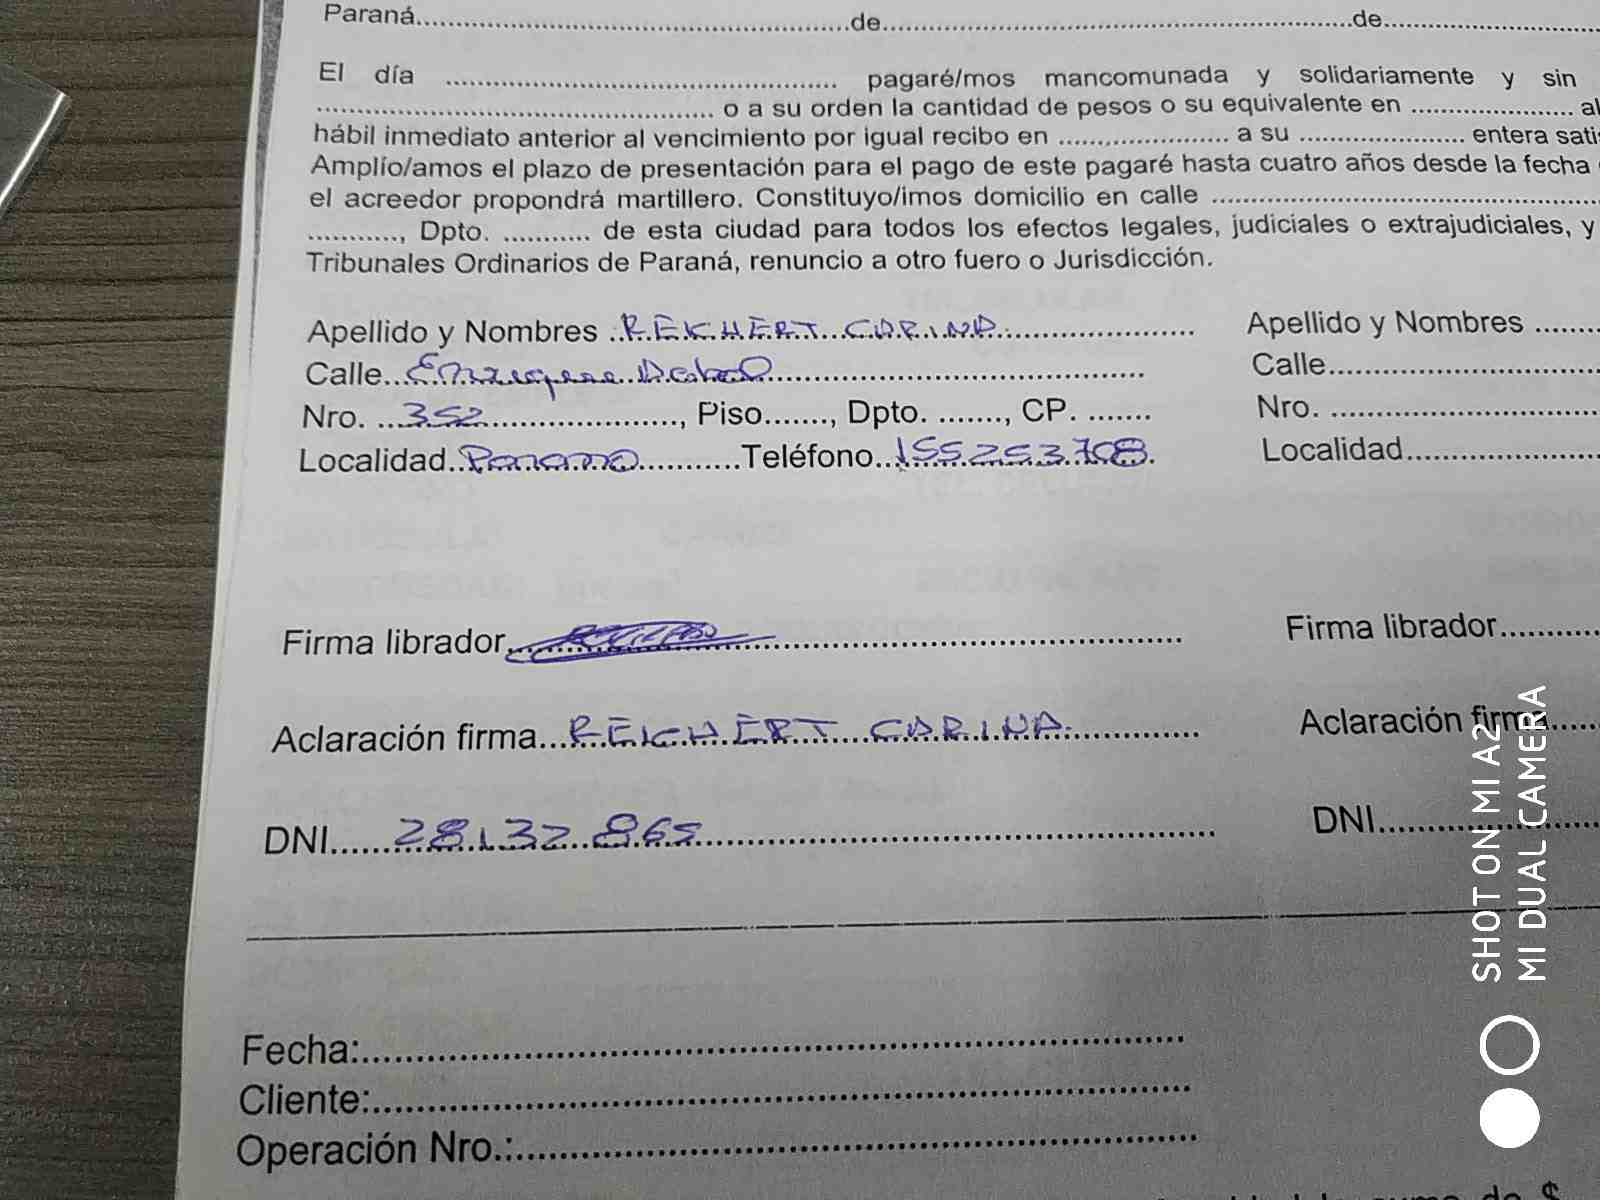 Paraná..........de..........de..........
El día .......... pagaré/mos mancomunada y solidariamente y sin
.......... o a su orden la cantidad de pesos o su equivalente en .......... al
hábil inmediato anterior al vencimiento por igual recibo en .......... a su .......... entera satis
Amplío/amos el plazo de presentación para el pago de este pagaré hasta cuatro años desde la fecha
el acreedor propondrá martillero. Constituyo/imos domicilio en calle ..........
.........., Dpto. .......... de esta ciudad para todos los efectos legales, judiciales o extrajudiciales, y
Tribunales Ordinarios de Paraná, renuncio a otro fuero o Jurisdicción.
Apellido y Nombres REICHERT CARINA Apellido y Nombres ......
Calle.......... Calle..........
Nro. ...352.........., Piso......., Dpto. ......., CP. ....... Nro. ..........
Localidad..Parana..........Teléfono...155253708. Localidad..........
Firma librador.......... Firma librador..........
Aclaración firma...REICHERT CARINA.......... Aclaración firma......
DNI......28.132.865.......... DNI..........
Fecha:..........
Cliente:..........
Operación Nro.:..........
SHOT ON MI A2
MI DUAL CAMERA